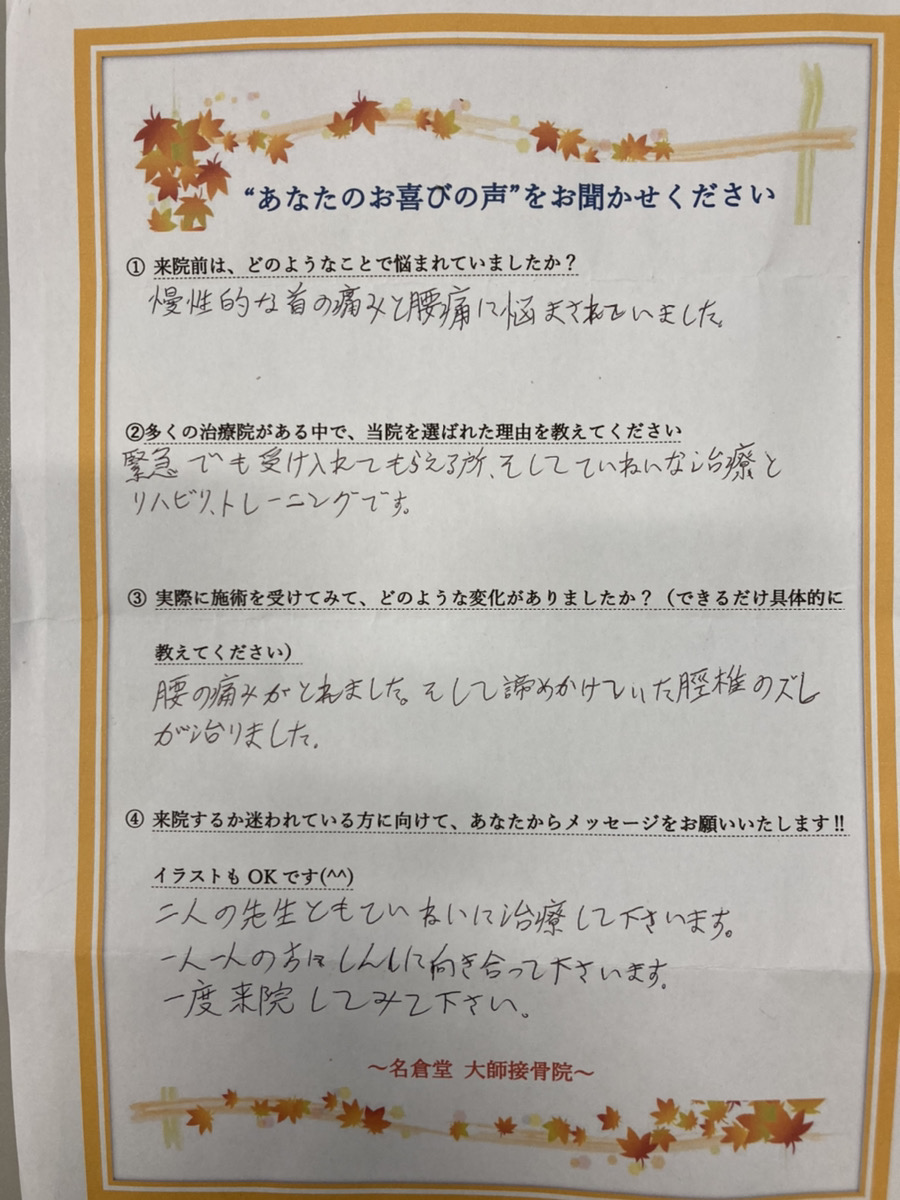 “あなたのお喜びの声”をお聞かせください
① 来院前は、どのようなことで悩まれていましたか？
慢性的な首の痛みと腰痛に悩まされていました。
②多くの治療院がある中で、当院を選ばれた理由を教えてください
緊急でも受け入れてもらえる所、そしてていねいな治療と
リハビリ、トレーニングです。
③ 実際に施術を受けてみて、どのような変化がありましたか？（できるだけ具体的に
教えてください）
腰の痛みがとれました。そして諦めかけていた脛椎のズレ
が治りました。
④ 来院するか迷われている方に向けて、あなたからメッセージをお願いいたします!!
イラストも OK です(^^)
二人の先生ともていねいに治療して下さいます。
一人一人の方にしんしに向き合って下さいます。
一度来院してみて下さい。
～名倉堂 大師接骨院～